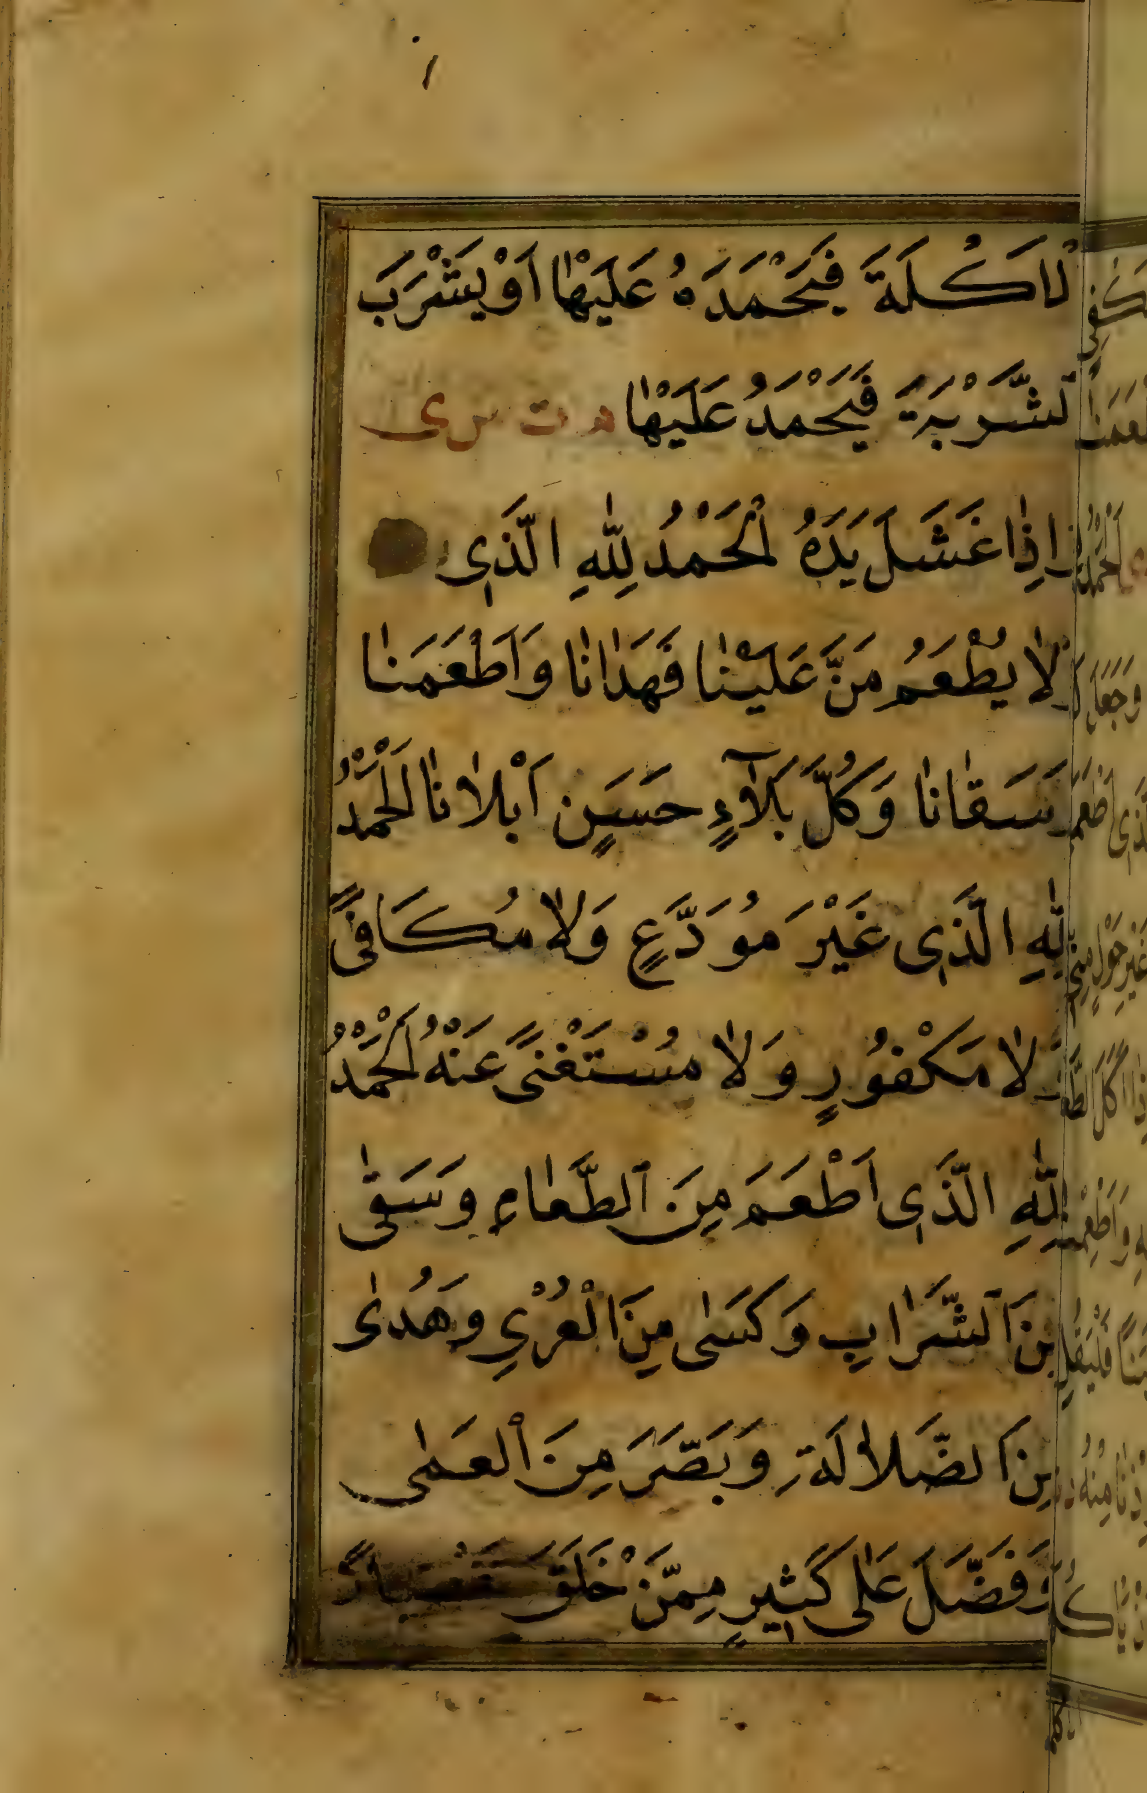 الْاَكْلَةَ فَيَحْمَدَهُ عَلَيْهٰا اَوْ يَشْرَبَ
الشَّرْبَةَ فَيَحْمَدُ عَلَيْهٰا م ت س ى
اِذٰا غَسَلَ يَدَهُ اَلْحَمْدُ لِلّٰهِ الَّذَٖى
لاٰ يُطْعَمُ مَنَّ عَلَيْنٰا فَهَدٰانٰا وَاَطْعَمَنٰا
سَقٰانٰا وَكُلَّ بَلٰٓاءٍ حَسَنٍ اَبْلاٰنٰا اَلْحَمْدُ
لِلّٰهِ الَّذَٖى غَيْرَ مُوَدَّعٍ وَلاٰ مُكَافًى
لاٰ مَكْفُورٍ وَلاٰ مُسْتَغْنًى عَنْهُ اَلْحَمْدُ
لِلّٰهِ الَّذَٖى اَطْعَمَ مِنَ الطَّعٰامِ وَسَقٰى
مِنَ الشَّرٰابِ وَكَسٰى مِنَ الْعُرْيِ وَهَدٰى
مِنَ الضَّلاٰلَةِ وَبَصَّرَ مِنَ الْعَمٰى
وَفَضَّلَ عَلٰى كَثٖيرٍ مِمَّنْ خَلَقَ